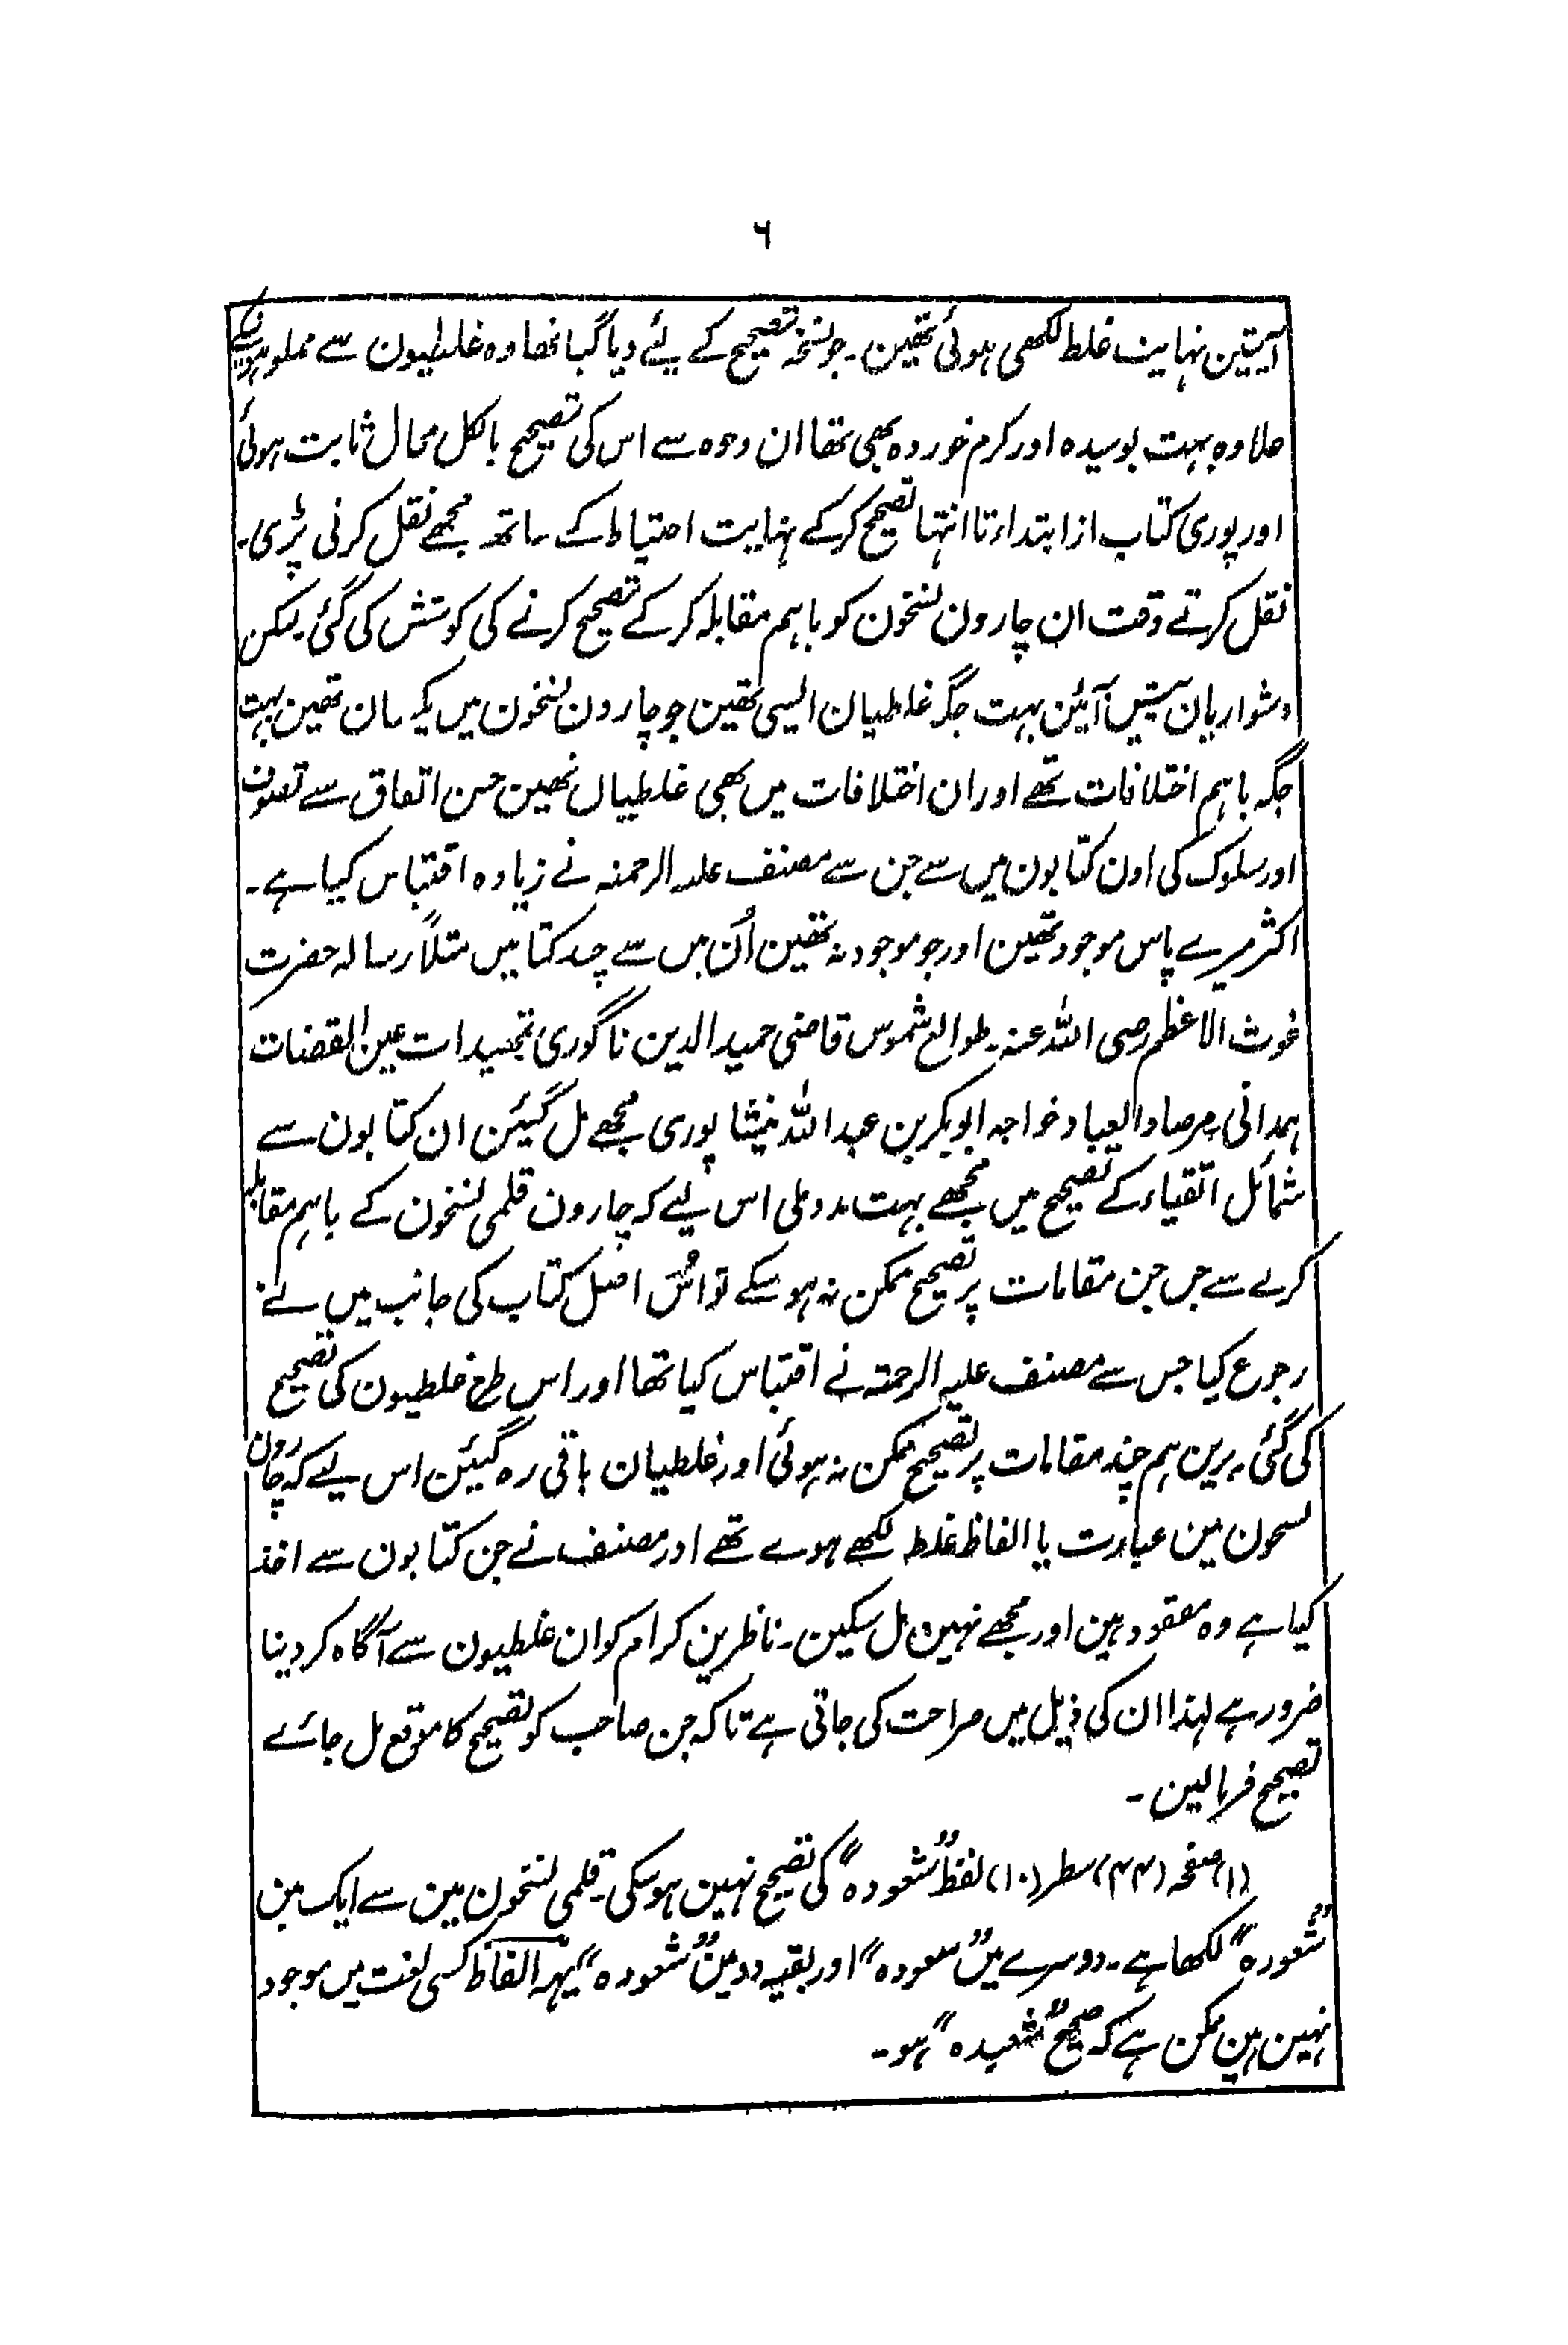 ۶
آیتین نہایت غلط لکھی ہوئی تھین۔ جو نسخہ تصحیح کے لئے دیا گیا تھا وہ غلطیون سے مملو ہونیکے
علاوہ بہت بوسیدہ اور کرم خوردہ بھی تھا ان وجوہ سے اس کی تصحیح بالکل محال ثابت ہوئی
اور پوری کتاب از ابتداء تا انتہا تصحیح کرکے نہایت احتیاط کے ساتھ مجھے نقل کرنی پڑی۔
نقل کرتے وقت ان چارون نسخون کو باہم مقابلہ کرکے تصحیح کرنے کی کوشش کی گئی۔ لیکن
دشواریان پیش آئین بہت جگہ غلطیان ایسی تھین جو چارون نسخون میں یکسان تھین بہت
جگہ باہم اختلافات تھے اور ان اختلافات میں بھی غلطیاں تھین حسن اتفاق سے تصوف
اور سلوک کی اون کتابون میں سے جن سے مصنف علیہ الرحمتہ نے زیادہ اقتباس کیا ہے۔
اکثر میرے پاس موجود تھین اور جو موجود نہ تھین اُن میں سے چند کتابیں مثلاً رسالہ حضرت
غوث الاعظم رضی اللہ عنہ۔ طوالع شموس قاضی حمید الدین ناگوری تمہیدات عین القضات
ہمدانی۔ مرصاد العباد خواجہ ابوبکر بن عبد اللہ نیشاپوری مجھے مل گیئن ان کتابون سے
شمائل اتقیاء کے تصحیح میں مجھے بہت مدد ملی اس لیے کہ چارون قلمی نسخون کے باہم مقابلہ
کرنے سے جن جن مقامات پر تصحیح ممکن نہ ہو سکے تو اُس اصل کتاب کی جانب میں نے
رجوع کیا جس سے مصنف علیہ الرحمتہ نے اقتباس کیا تھا اور اس طرح غلطیون کی تصحیح
کی گئی۔ برین ہم چند مقامات پر تصحیح ممکن نہ ہوئی اور غلطیان باقی رہ گیئن اس لیے کہ چارون
نسخون مین عبارت یا الفاظ غلط لکھے ہوے تھے اور مصنف نے جن کتابون سے اخذ
کیا ہے وہ مفقود ہین اور مجھے نہین مل سکین۔ ناظرین کرام کو ان غلطیون سے آگاہ کر دینا
ضرور ہے لہذا ان کی ذیل میں صراحت کی جاتی ہے تاکہ جن صاحب کو تصحیح کا موقع مل جائے
تصحیح فرمالین۔
(۱) صفحہ (۴۴) سطر (۱۰) لفظ "شعودہ" کی تصحیح نہین ہوسکی۔ قلمی نسخون مین سے ایک مین
"شعورہ" لکھا ہے۔ دوسرے میں "سعودہ" اور بقیہ دو مین "شعودہ" یہہ الفاظ کسی لغت میں موجود
نہین ہین ممکن ہے کہ صحیح "شعیدہ" ہو۔